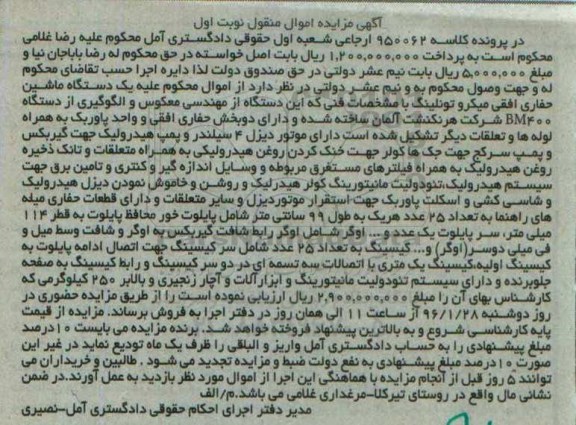 آگهی مزایده اموال منقول نوبت اول
در پرونده کلاسه ۹۵۰۰۶۲ ارجاعی شعبه اول حقوقی دادگستری آمل محکوم علیه رضا غلامی
محکوم است به پرداخت ۱,۲۰۰,۰۰۰,۰۰۰ ریال بابت اصل خواسته در حق محکوم له رضا باباجان نیا و
مبلغ ۵,۰۰۰,۰۰۰ ریال بابت نیم عشر دولتی در حق صندوق دولت لذا دایره اجرا حسب تقاضای محکوم
له و جهت وصول محکوم به و نیم عشر دولتی در نظر دارد از اموال محکوم علیه یک دستگاه ماشین
حفاری افقی میکرو تونلینگ با مشخصات فنی که این دستگاه از مهندسی معکوس و الگوگیری از دستگاه
BM۴۰۰ شرکت هرنکنشت آلمان ساخته شده و دارای دوبخش حفاری افقی و واحد پاوربک به همراه
لوله ها و تعلقات دیگر تشکیل شده است دارای موتور دیزل ۴ سیلندر و پمپ هیدرولیک جهت گیربکس
و پمپ سرکج جهت جک ها کولر جهت خنک کردن روغن هیدرولیکی به همراه متعلقات و تانک ذخیره
روغن هیدرولیک به همراه فیلترهای مستغرق مربوطه و وسایل اندازه گیر و کنتری و تامین برق جهت
سیستم هیدرولیک،تئودولیت مانیتورینگ کولر هیدرلیک و روشن و خاموش نمودن دیزل هیدرولیک
و شاسی کشی و اسکلت پاوربک جهت استقرار موتوردیزل و سایر متعلقات و دارای قطعات حفاری میله
های راهنما به تعداد ۲۵ عدد هریک به طول ۹۹ سانتی متر شامل پایلوت خور محافظ پایلوت به قطر ۱۱۴
میلی متر، سر پایلوت یک عدد و ... اوگر شامل اوگر رابط شافت گیربکس به اوگر و شافت وسط میل و
فی میلی دوسر(اوگر) و... کیسینگ به تعداد ۲۵ عدد شامل سر کیسینگ جهت اتصال ادامه پایلوت به
کیسینگ اولیه،کیسینگ یک متری با اتصالات سه تسمه ای در دو سر کیسینگ و رابط کیسینگ به صفحه
جلوبرنده و دارای سیستم تئودولیت مانیتورینگ و ابزارآلات و آچار زنجیری و بالابر ۲۵۰ کیلوگرمی که
کارشناس بهای آن را مبلغ ۲,۹۰۰,۰۰۰,۰۰۰ ریال ارزیابی نموده است را از طریق مزایده حضوری در
روز دوشنبه ۹۶/۱/۲۸ از ساعت ۱۱ الی همان روز در دفتر اجرا به فروش برساند. مزایده از قیمت
پایه کارشناسی شروع و به بالاترین پیشنهاد فروخته خواهد شد. برنده مزایده می بایست ۱۰درصد
مبلغ پیشنهادی را به حساب دادگستری آمل واریز و الباقی را ظرف یک ماه تودیع نماید در غیر این
صورت ۱۰درصد مبلغ پیشنهادی به نفع دولت ضبط و مزایده تجدید می شود . طالبین و خریداران می
توانند ۵ روز قبل از انجام مزایده با هماهنگی این اجرا از اموال مورد نظر بازدید به عمل آورند.در ضمن
نشانی مال واقع در روستای تیرکلا-مرغداری غلامی می باشد.م/الف
مدیر دفتر اجرای احکام حقوقی دادگستری آمل-نصیری